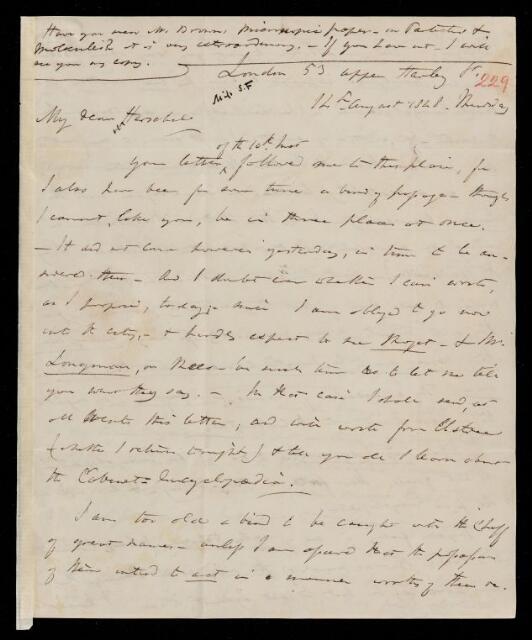 Have you seen Mr. Brown's microscopic paper - on Particles &
Molecules it is very extraordinary. - If you have not - I will
my copy.
London 53 Upper Harley St.
229
14th August 1828 - Thursday
My dear Herschel
of the 10th inst
Your letter, followed me to this place, for
I also have been for some time a bird of passage - though
I cannot, like you, be in three places at once.
- It did not come however yesterday, in time to be an-
swered then - and I doubt even whether I can write,
as I propose, today; - since I am obliged to go now
into the city, - & hardly expect to see - & Mr.
Longman, or Rees - in such time as to let me tell
you what they say. - In that case I shall send, at
all events this letter, and will write from Elstree
(whether I return tonight) & tell you all I learn about
the Cabinet Encyclopædia.
I am too old a bird to be caught with the Chaff
of great names - unless I am assured that the
of them intend to act in a manner worthy of them